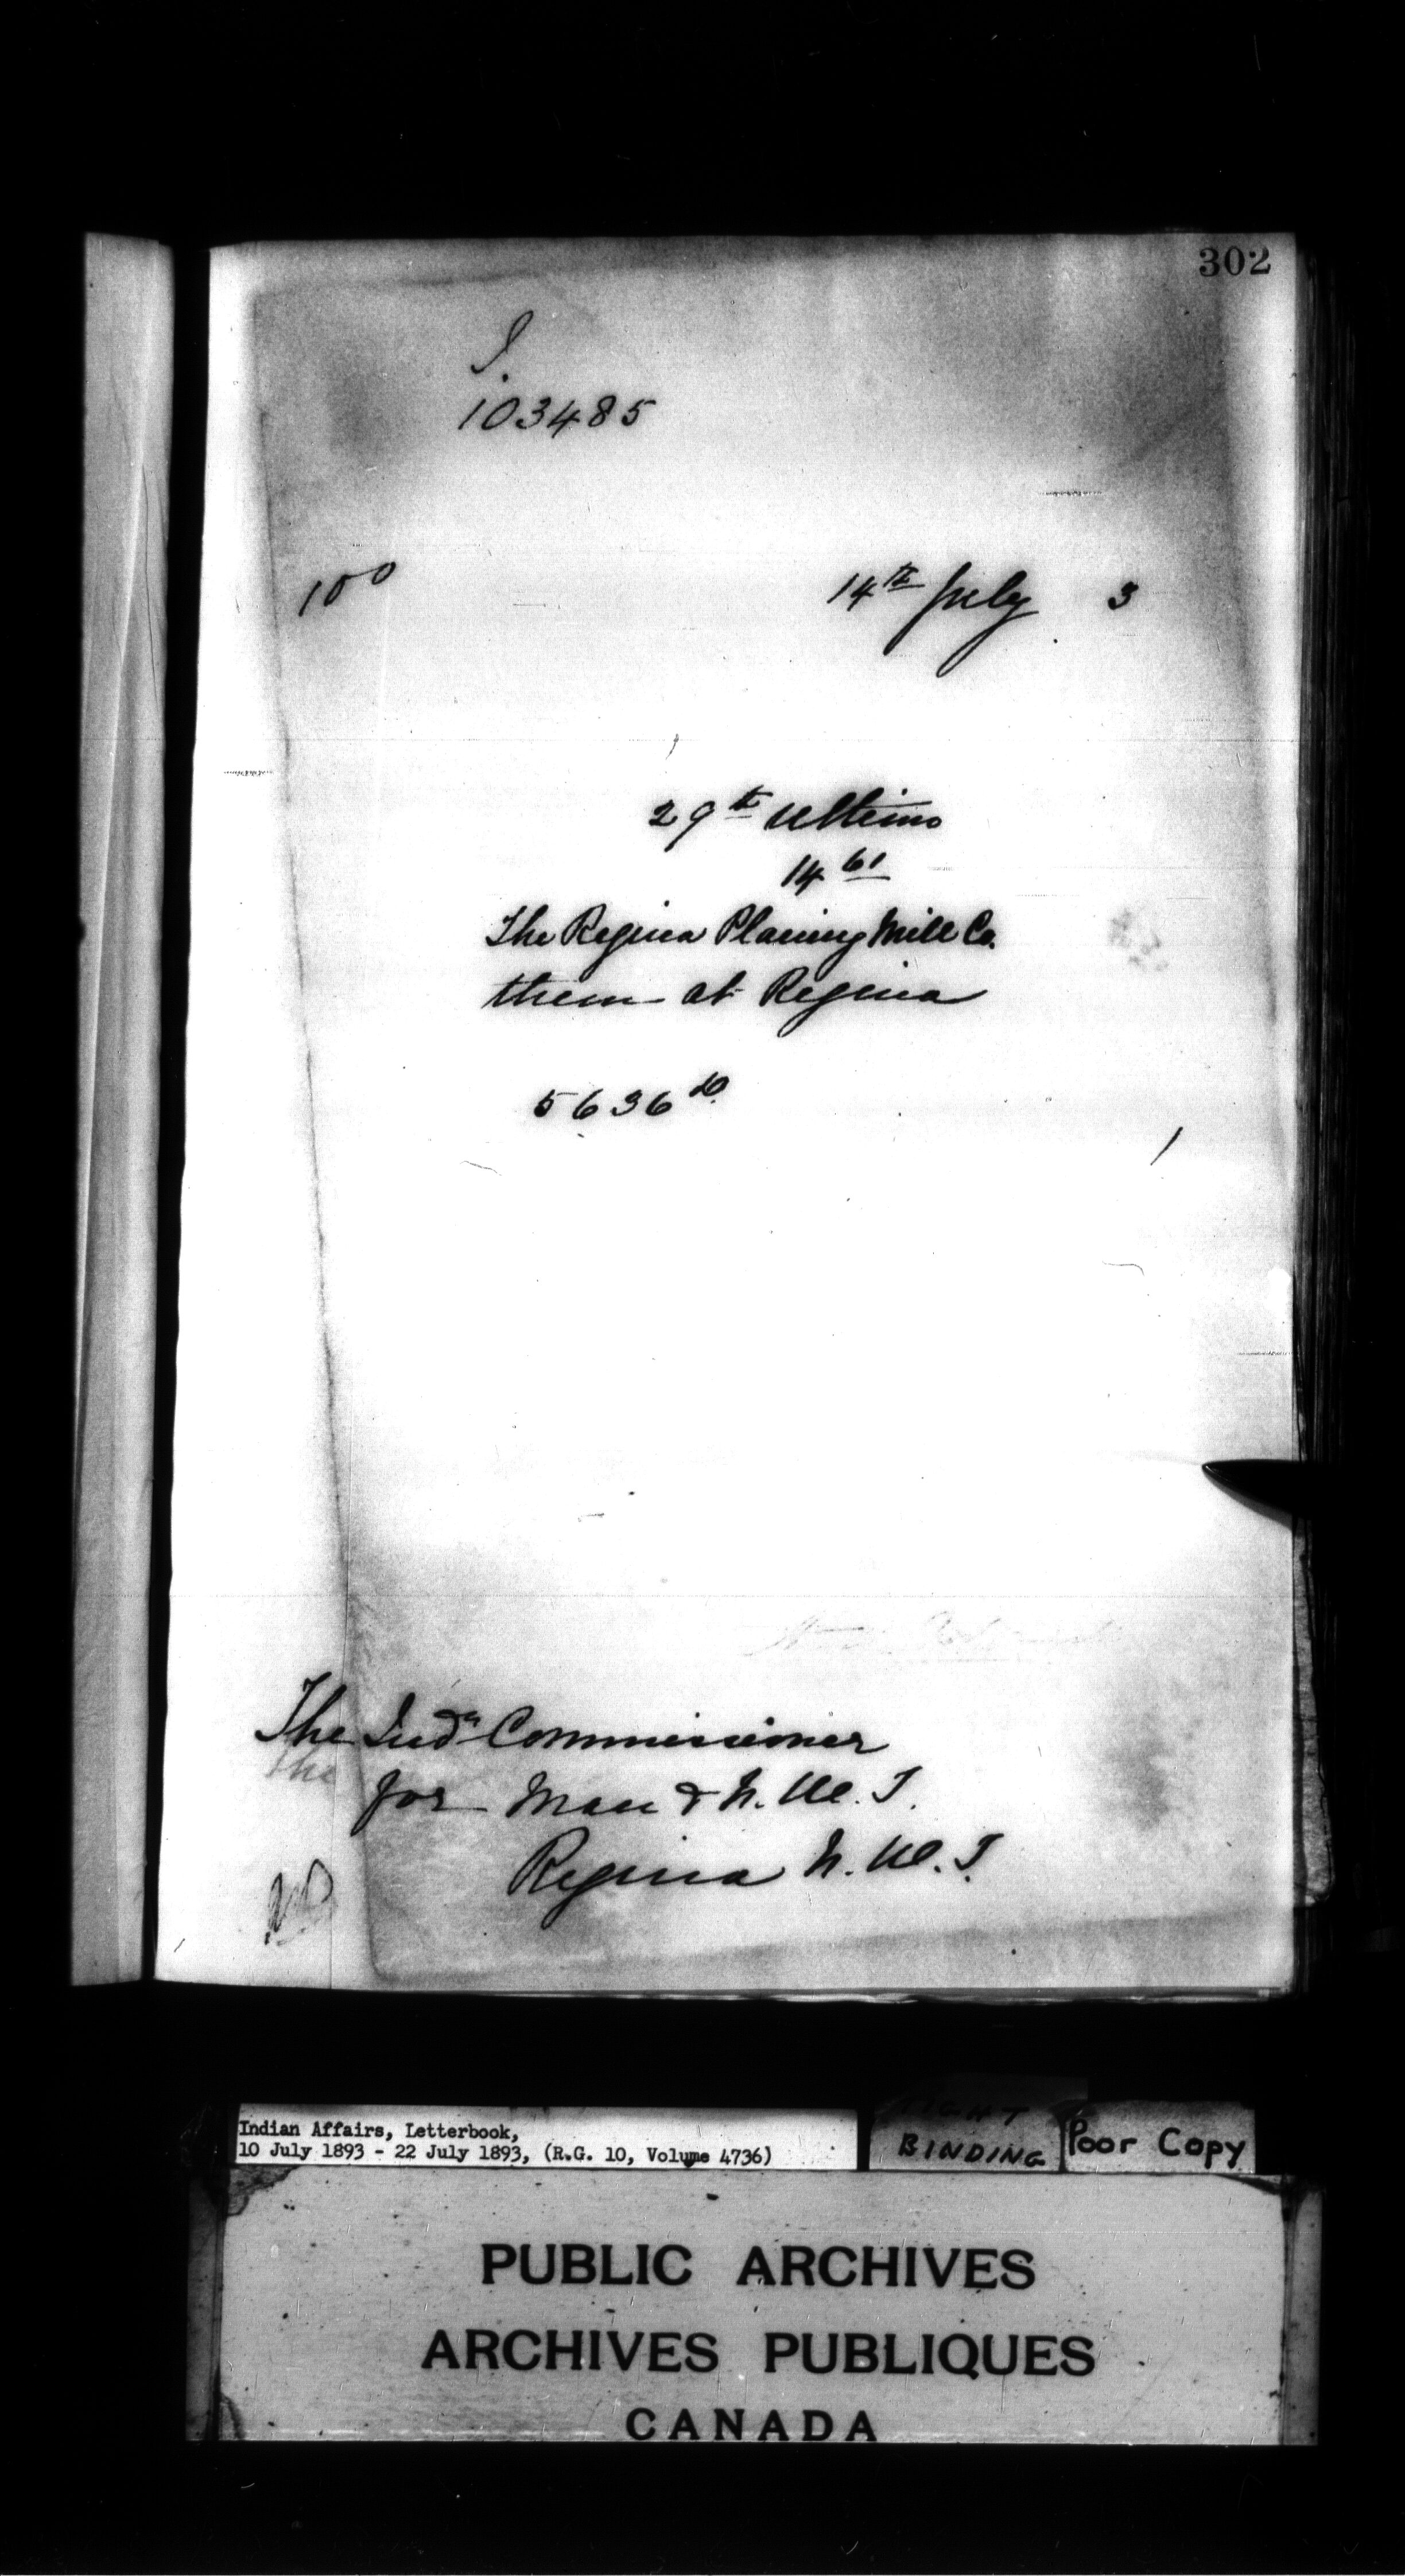 302
I.
103485
100
14th July 3
29th Ultimo
14 61
The Regina Planing Mill Co.
them at Regina
5636
The Indn Commissioner
The
for Man & N. W. T.
Regina N. W. T.
Indian Affairs, Letterbook,
10 July 1893 - 22 July 1893, (R.G. 10, Volume 4736)
TIGHT
BINDING
Poor Copy
PUBLIC ARCHIVES
ARCHIVES PUBLIQUES
CANADA